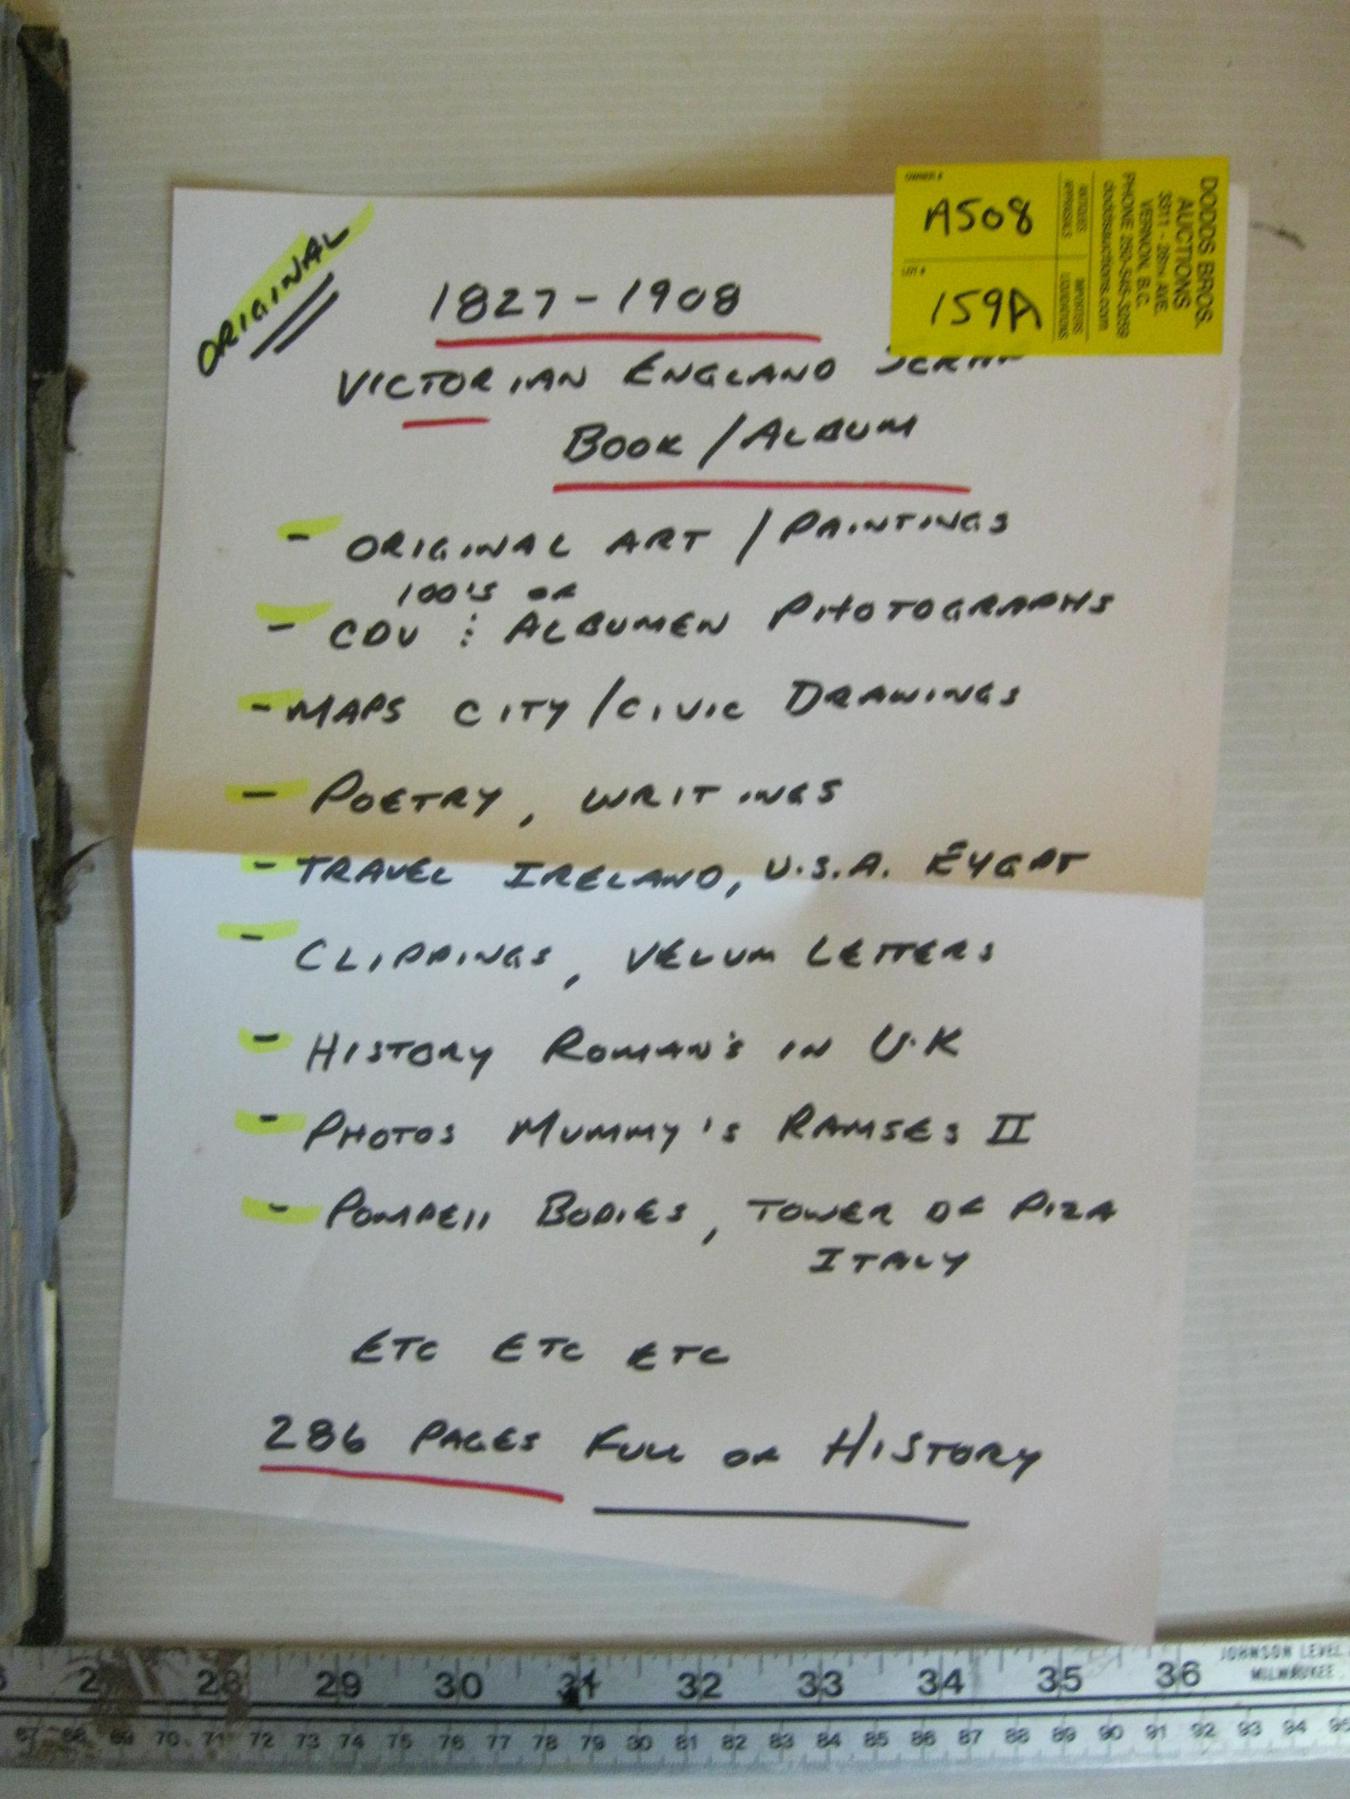 ORIGINAL
1827-1908
VICTORIAN ENGLAND SCRAP
BOOK/ALBUM
- ORIGINAL ART/PAINTINGS
100'S OF
- CDV : ALBUMEN PHOTOGRAPHS
- MAPS CITY/CIVIC DRAWINGS
- POETRY, WRITINGS
- TRAVEL IRELAND, U.S.A. EYGPT
- CLIPPINGS, VELUM LETTERS
- HISTORY ROMAN'S IN U.K
- PHOTOS MUMMY'S RAMSES II
- POMPEII BODIES, TOWER OF PIZA
ITALY
ETC ETC ETC
286 PAGES FULL OF HISTORY
OWNER #
A508
LOT #
159A
ANTIQUES
APPRAISALS
IMPORTERS
LIQUIDATIONS
DODDS BROS.
AUCTIONS
3311 - 28TH AVE.
VERNON, B.C.
PHONE 250-545-3259
doddsauctions.com
28 29 30 31 32 33 34 35 36
JOHNSON LEVEL
MILWAUKEE
67 68 69 70 71 72 73 74 75 76 77 78 79 80 81 82 83 84 85 86 87 88 89 90 91 92 93 94 95